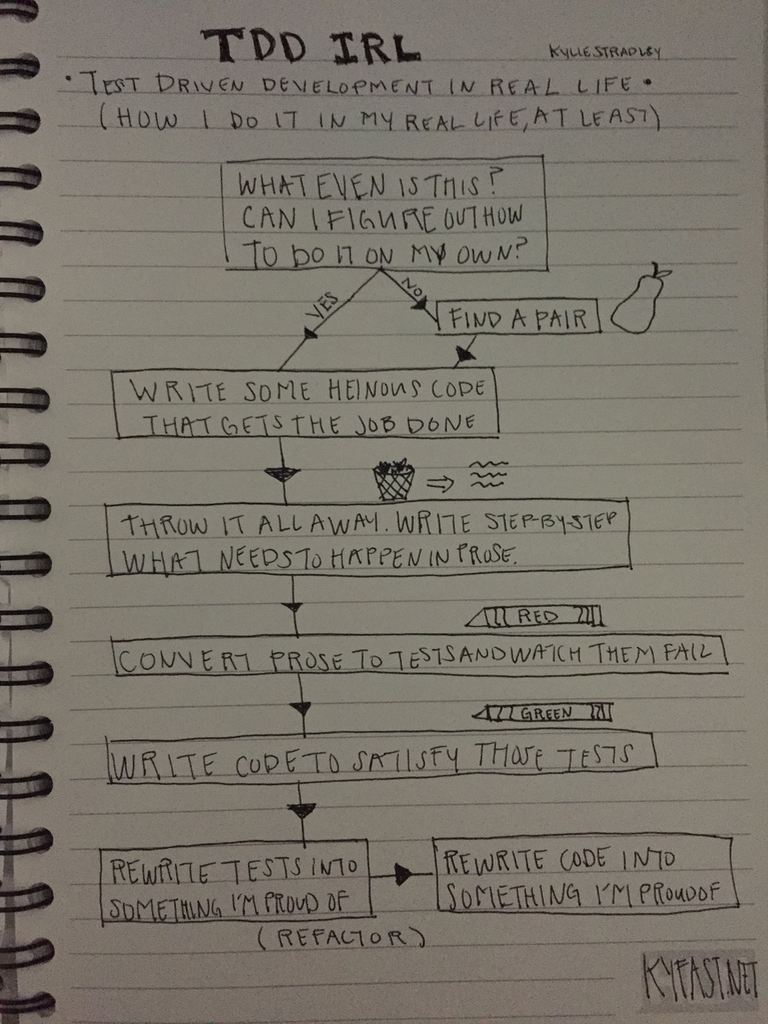 TDD IRL
KYLIE STRADLEY
• TEST DRIVEN DEVELOPMENT IN REAL LIFE •
(HOW I DO IT IN MY REAL LIFE, AT LEAST)
WHAT EVEN IS THIS?
CAN I FIGURE OUT HOW
TO DO IT ON MY OWN?
YES
NO
FIND A PAIR
WRITE SOME HEINOUS CODE
THAT GETS THE JOB DONE
THROW IT ALL AWAY. WRITE STEP-BY-STEP
WHAT NEEDS TO HAPPEN IN PROSE.
RED
CONVERT PROSE TO TESTS AND WATCH THEM FAIL
GREEN
WRITE CODE TO SATISFY THOSE TESTS
REWRITE TESTS INTO
SOMETHING I'M PROUD OF
REWRITE CODE INTO
SOMETHING I'M PROUD OF
(REFACTOR)
KYFAST.NET